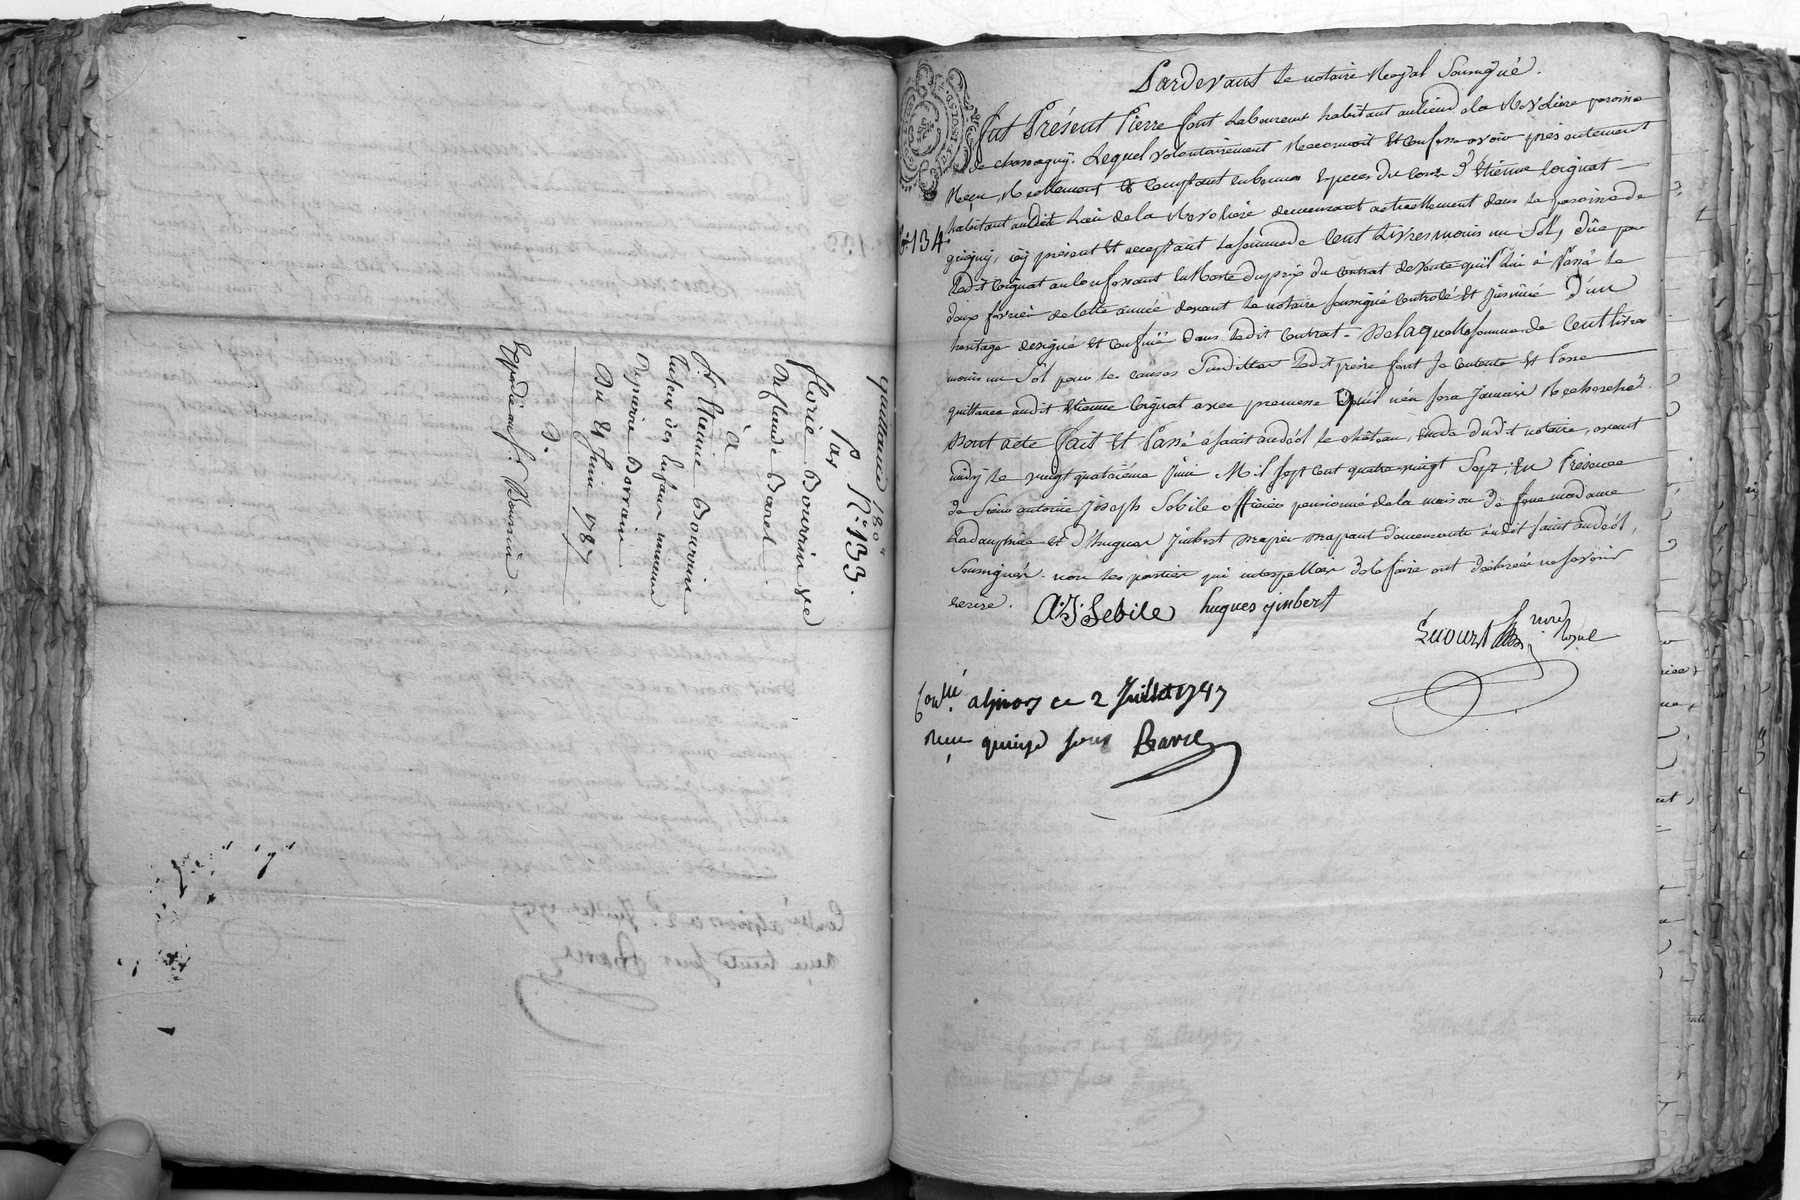 quittance 180#
Par N.° 133.
florie Bourrin ve
De flaude Barel
à
S.r Etienne Bourrin
tuteur des Enfans mineurs
De pierre Bourrin
Du 21 Juin 1787
Expedié au S.r Bourrin
Pardevant le notaire Royal Soussigné.
fut Présent Pierre font Laboureur habitant au lieu de la Rovoliere paroisse
de chassagny. Lequel volontairement Reconnoit Et Confesse avoir présentement
Reçu, Réellement & Comptant en bonnes Especes Du Cours d'Etienne Coignat
habitant audit Lieu de la Rovoliere demeurant actuellement dans la paroisse de
N.° 134.
grigny, icy présent Et acceptant La somme de Cent Livres moins un Sol, düe par
Ledit Coignat au Confessant En Reste du prix du Contrat de vente qu'il lui à Passé le
doux fevrier de cette année devant le notaire soussigné Controlé Et Insinué D'un
heritage designé et Confiné Dans Ledit Contrat - De laquelle somme de Cent livres
moins un Sol pour les causes Susdittes Ledit pierre font Se Contente Et Passe
quittance audit Etienne Coignat avec promesse Qu'il n'en sera Jamais Recherché.
Dont acte fait Et Passé a saint andéol le château, Etude dudit notaire, avant
midy le vingt quatrième Juin Mil sept cent quatre vingt Sept. En Présence
de Sieur antoine Joseph Sebile officier pensionné de la maison de feue madame
La dauphine et d'hugues Jinbert demeurants audit saint andéol,
Soussignés. non les parties qui interpellées de le faire ont déclarées ne savoir
Ecrire.
A: J: Sebile hugues jinbert
not.re Royal
Con.lé a givors ce 2 Juillet 1787
Reçu quinze sous Bavre